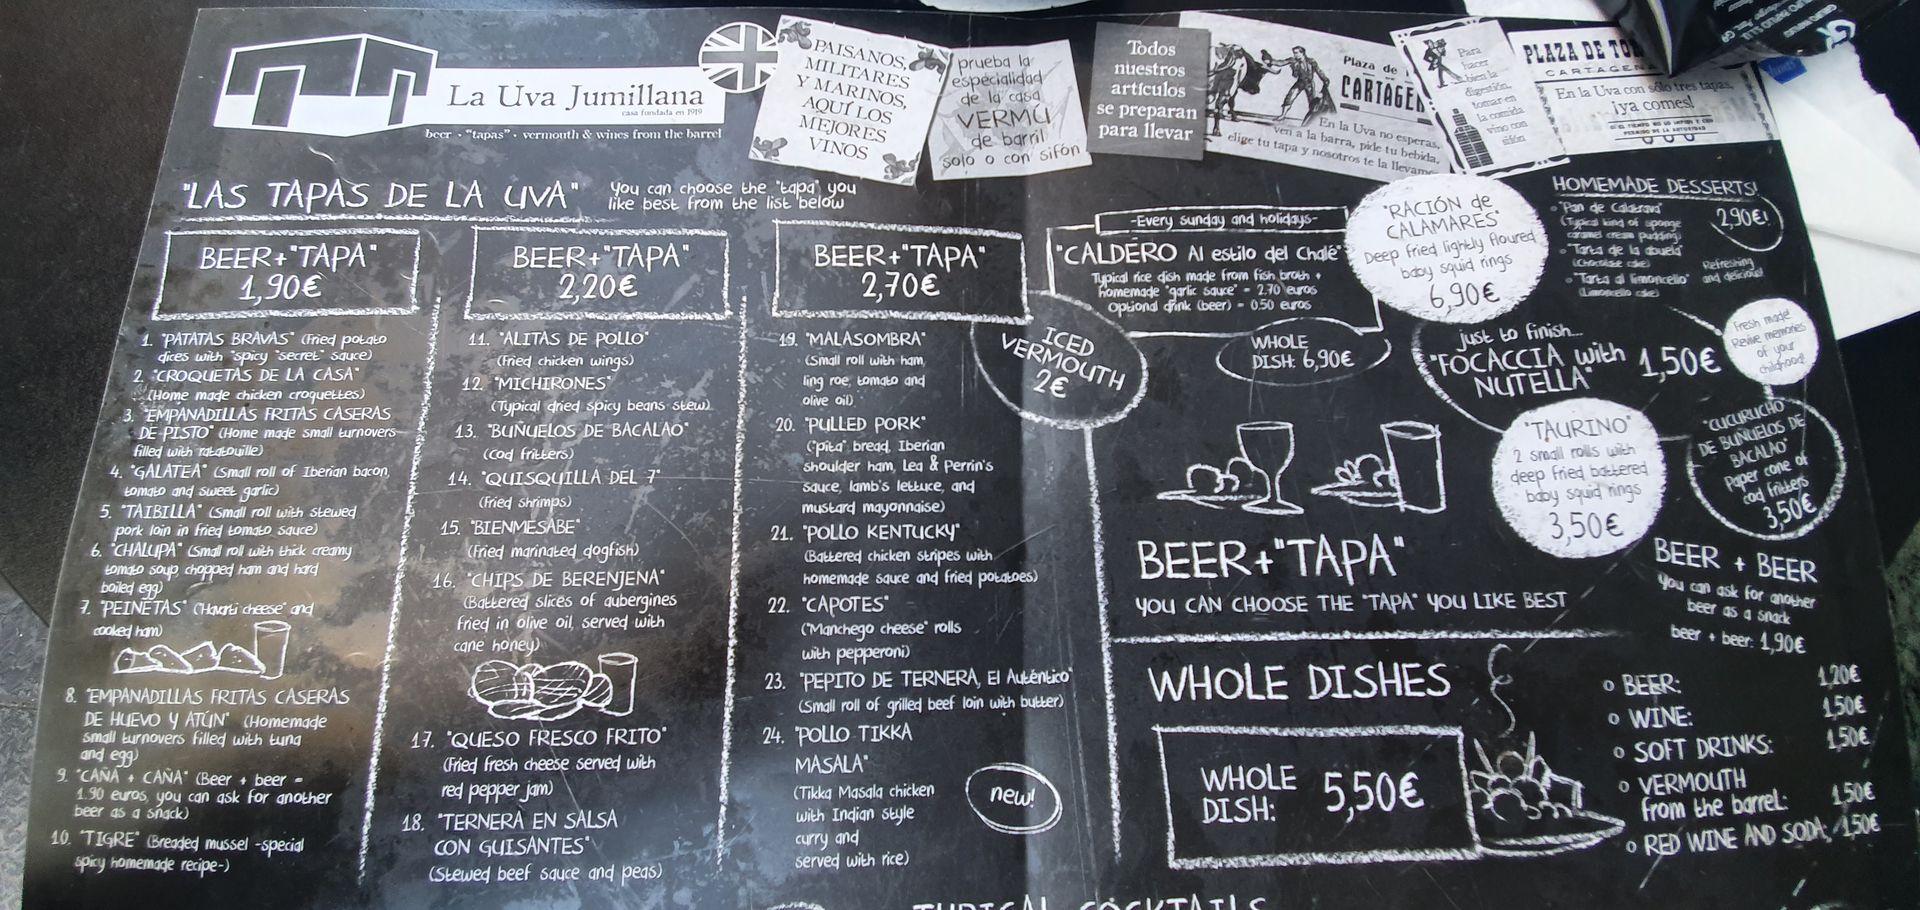 La Uva Jumillana
casa fundada en 1919
beer · "tapas" · vermouth & wines from the barrel
PAISANOS,
MILITARES
Y MARINOS,
AQUÍ LOS
MEJORES
VINOS
prueba la
especialidad
de la casa
VERMÚ
de barril
solo o con sifón
Todos
nuestros
artículos
se preparan
para llevar
Plaza de
CARTAGEN
En la Uva no esperas,
ven a la barra, pide tu bebida,
elige tu tapa y nosotros te la llevam
Para
hacer
bien la
digestión,
tomar en
la comida
vino con
sifón
PLAZA DE TO
CARTAGENA
En la Uva con sólo tres tapas,
¡ya comes!
"LAS TAPAS DE LA UVA"
You can choose the "tapa" you
like best from the list below
BEER+"TAPA"
1,90€
1. "PATATAS BRAVAS" (Fried potato
dices with "spicy "secret" sauce)
2. "CROQUETAS DE LA CASA"
(Home made chicken croquettes)
3. "EMPANADILLAS FRITAS CASERAS
DE PISTO" (Home made small turnovers
filled with ratatouille)
4. "GALATEA" (Small roll of Iberian bacon,
tomato and sweet garlic)
5. "TAIBILLA" (Small roll with stewed
pork loin in fried tomato sauce)
6. "CHALUPA" (Small roll with thick creamy
tomato soup chopped ham and hard
boiled egg)
7. "PEINETAS" ("Havarti cheese" and
cooked ham)
8. "EMPANADILLAS FRITAS CASERAS
DE HUEVO Y ATÚN" (Homemade
small turnovers filled with tuna
and egg)
9. "CAÑA + CAÑA" (Beer + beer =
1.90 euros, you can ask for another
beer as a snack)
10. "TIGRE" (Breaded mussel -special
spicy homemade recipe-)
BEER+"TAPA"
2,20€
11. "ALITAS DE POLLO"
(Fried chicken wings)
12. "MICHIRONES"
(Typical dried spicy beans stew)
13. "BUÑUELOS DE BACALAO"
(Cod fritters)
14. "QUISQUILLA DEL 7"
(Fried shrimps)
15. "BIENMESABE"
(Fried marinated dogfish)
16. "CHIPS DE BERENJENA"
(Battered slices of aubergines
fried in olive oil, served with
cane honey)
17. "QUESO FRESCO FRITO"
(Fried fresh cheese served with
red pepper jam)
18. "TERNERA EN SALSA
CON GUISANTES"
(Stewed beef sauce and peas)
BEER+"TAPA"
2,70€
19. "MALASOMBRA"
(Small roll with ham,
ling roe, tomato and
olive oil)
20. "PULLED PORK"
("pita" bread, Iberian
shoulder ham, Lea & Perrin's
sauce, lamb's lettuce, and
mustard mayonnaise)
21. "POLLO KENTUCKY"
(Battered chicken stripes with
homemade sauce and fried potatoes)
22. "CAPOTES"
("Manchego cheese" rolls
with pepperoni)
23. "PEPITO DE TERNERA, El Auténtico"
(Small roll of grilled beef loin with butter)
24. "POLLO TIKKA
MASALA"
(Tikka Masala chicken
with Indian style
curry and
served with rice)
new!
ICED
VERMOUTH
2€
-Every sunday and holidays-
"CALDERO Al estilo del Chalé"
Typical rice dish made from fish broth +
homemade "garlic sauce" = 2.70 euros
Optional drink (beer) = 0.50 euros
WHOLE
DISH: 6,90€
"RACIÓN de
CALAMARES"
Deep fried lightly floured
baby squid rings
6,90€
HOMEMADE DESSERTS!
"Pan de Calatrava"
(Typical kind of sponge
caramel cream pudding)
"Tarta de la abuela"
(Chocolate cake)
"Tarta al limoncello"
(Limoncello cake)
2,90€!
Refreshing
and delicious!
just to finish...
"FOCACCIA with
NUTELLA"
1,50€
Fresh made!
Revive memories
of your
childhood!
"TAURINO"
2 small rolls with
deep fried battered
baby squid rings
3,50€
"CUCURUCHO
DE BUÑUELOS DE
BACALAO"
Paper cone of
cod fritters
3,50€
BEER+"TAPA"
YOU CAN CHOOSE THE "TAPA" YOU LIKE BEST
BEER + BEER
You can ask for another
beer as a snack
beer + beer: 1,90€
WHOLE DISHES
WHOLE
DISH: 5,50€
BEER: 1,20€
WINE: 1,50€
SOFT DRINKS: 1,50€
VERMOUTH
from the barrel: 1,50€
RED WINE AND SODA: 1,50€
TYPICAL COCKTAILS